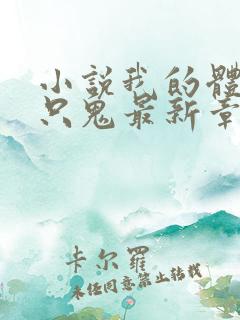 小說我的體
只鬼最新章
卡尔羅
未经同意禁止转载